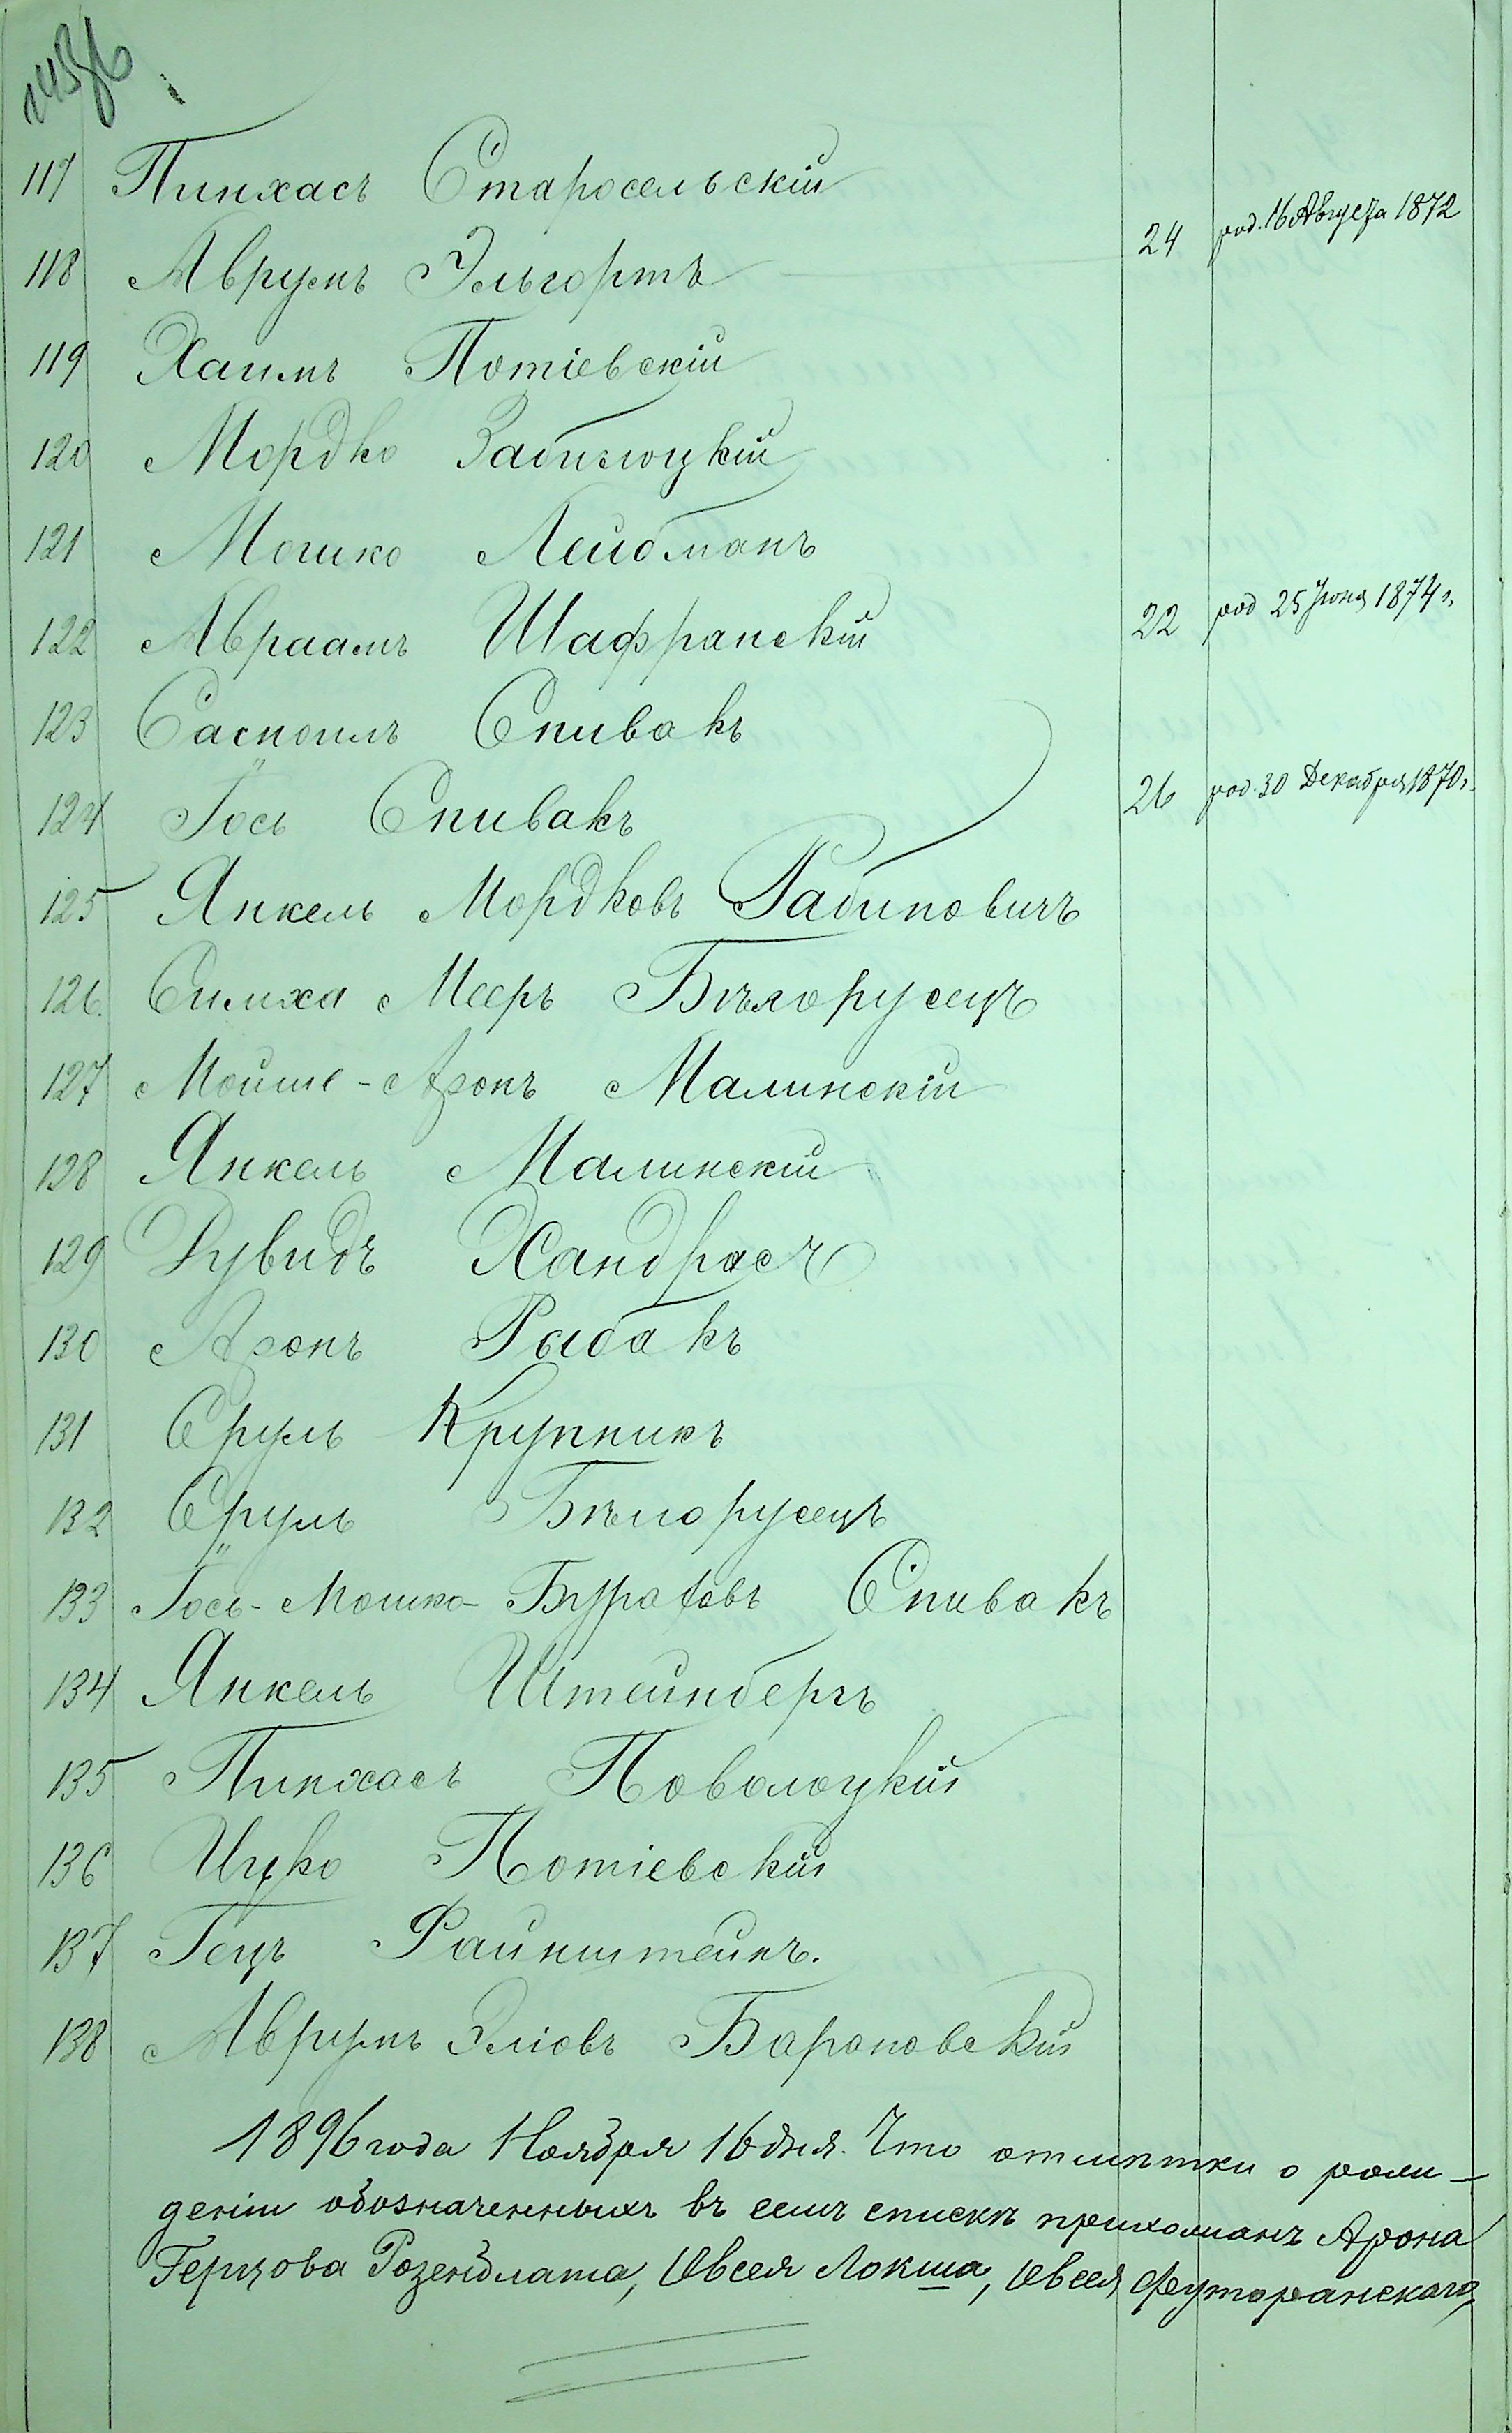 117 Пинхасъ Старосельскій
118 Аврумъ Эльгортъ 24 род. 16 Августа 1872
119 Хаимъ Потіевскій
120 Мордко Забилоцкій
121 Мошко Лейбманъ
122 Авраамъ Шафранскій 22 род 25 Іюня 1874 г.
123 Спивакъ
124 Іось Спивакъ 26 род. 30 Декабря 1870 г.
125 Янкель Мордковъ Рабиновичъ
126. Симха Мееръ Бѣлорусецъ
127 Мойше-Аронъ Малинскій
128 Янкель Малинскій
129 Дувидъ Хандросъ
130 Аронъ Рыбакъ
131 Сруль Крупникъ
132 Сруль Бѣлорусецъ
133 Іось-Мошко- Спивакъ
134 Янкель Штейнбергъ
135 Пинхасъ Поволоцкій
136 Ицко Потіевскій
137 Гецъ Файнштейнъ.
138 Аврумъ Эліовъ Барановскій
1896 года Ноября 16 дня. Что отмѣтки о рож-
деніи обозначенныхъ въ семъ спискѣ прихожанъ Арона
Герцова Розенблата, Овсея Локша, Овсея Футоранскаго,